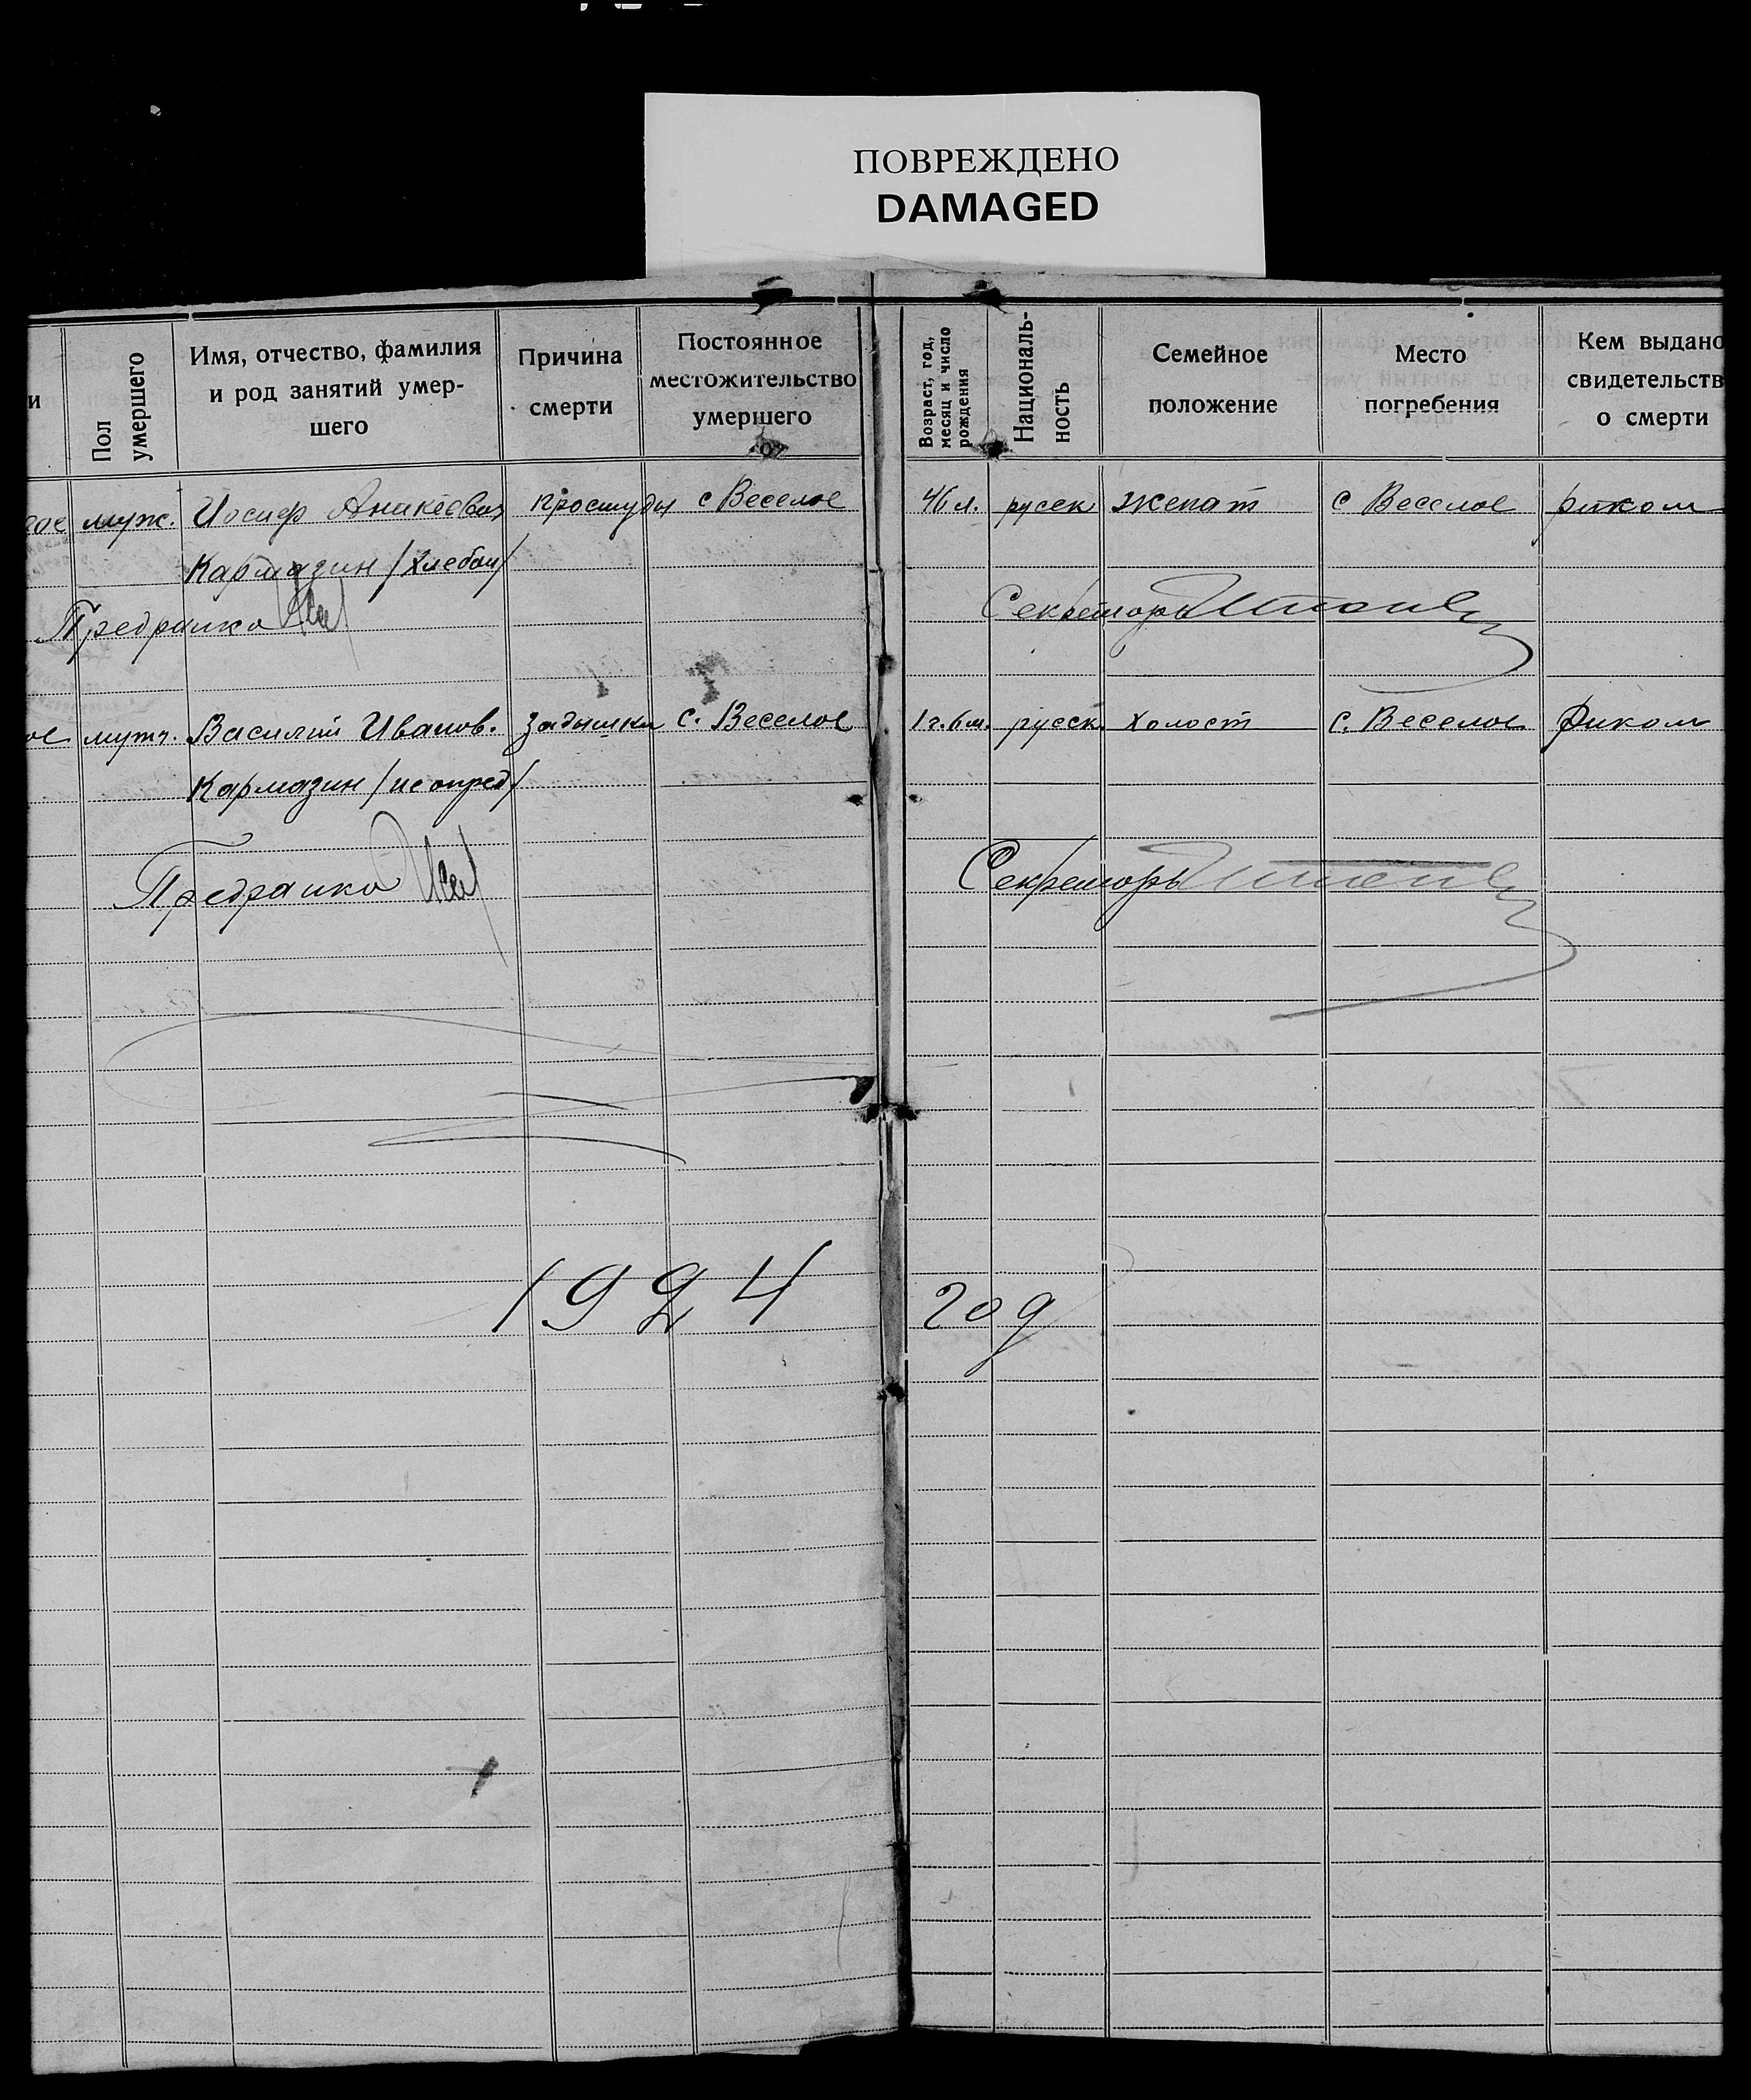 ПОВРЕЖДЕНО
DAMAGED
и
Пол умершего
Имя, отчество, фамилия
и род занятий умер-
шего
Причина
смерти
Постоянное
местожительство
умершего
Возраст, год,
месяц и число
рождения
Националь-
ность
Семейное
положение
Место
погребения
Кем выдано
свидетельств
о смерти
муж. Иосиф Аникеевич простуды с Веселое 46 л. русск женат с Веселое риком
Кармазин /хлебоп/
Предрика Секретарь
муж. Василий Иванов. Задышка с. Веселое 1 г. 6 м. русск. холост с. Веселое Риком
Кармазин /не опред/
Предрика Секретарь
1924 год